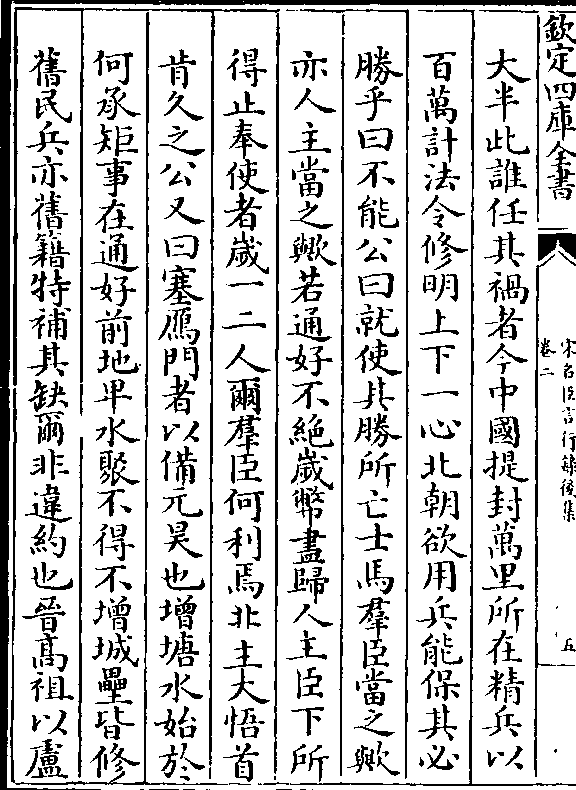 欽定四庫全書
宋名臣言行錄後集
卷二
五
大半此誰任其禍者今中國提封萬里所在精兵以
百萬計法令修明上下一心北朝欲用兵能保其必
勝乎曰不能公曰就使其勝所亡士馬羣臣當之歟
亦人主當之歟若通好不絶歲幣盡歸人主臣下所
得止奉使者歲一二人爾羣臣何利焉北主大悟首
肯久之公又曰塞鴈門者以備元昊也增塘水始於
何承矩事在通好前地卑水聚不得不增城壘皆修
舊民兵亦舊籍特補其缺爾非違約也晉髙祖以盧